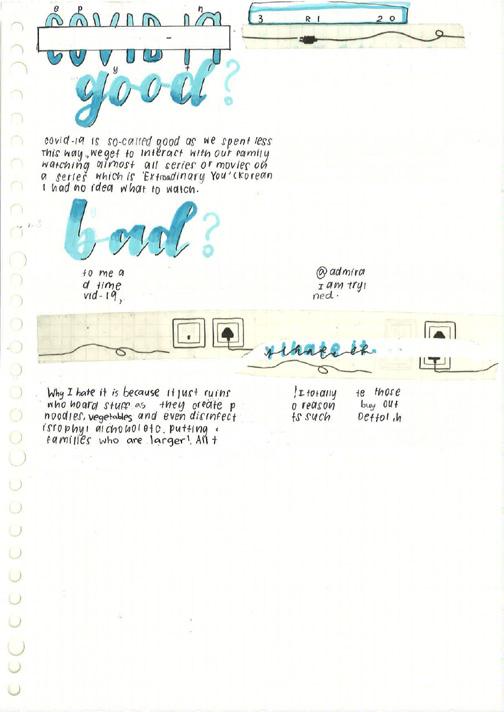 e p n
COVID 19
3 R I 20
y t
good?
covid-19 is so-called good as we spent less
This way, we get to interact with our family
watching almost all series or movies on
a series which is 'Extraordinary You' (Korean
I had no idea what to watch.
bad?
to me a @admira
d time I am tryi
vid-19, ned.
hate it.
Why I hate it is because it just ruins !I totally te those
who hoard stuff as they create p o reason buy out
noodles, vegetables and even disinfect ts such Dettol, h
isrophyl alchohol etc. putting
families who are larger! All t